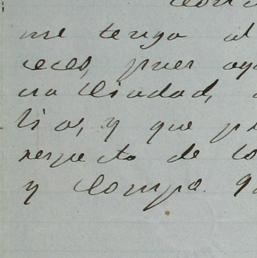 me tengo al
eces, pues aq
na Ciudad,
lia, y que p
respecto de lo
y Compa.